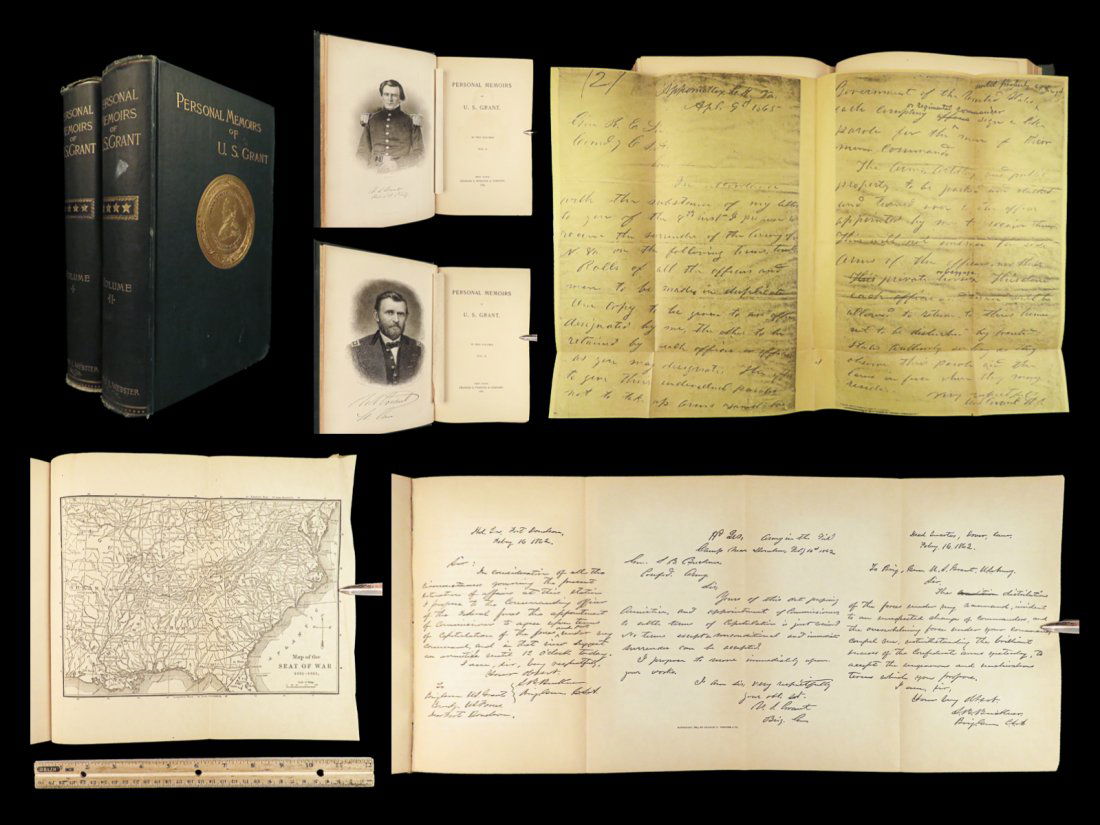 PERSONAL
MEMOIRS
OF
U.S. GRANT
VOLUME
I
WEBSTER
PERSONAL
MEMOIRS
OF
U.S. GRANT
VOLUME
II
WEBSTER
PERSONAL MEMOIRS
OF
U. S. GRANT
PERSONAL MEMOIRS
OF
U. S. GRANT.
IN TWO VOLUMES
VOL. I.
NEW YORK
CHARLES L. WEBSTER & COMPANY
PERSONAL MEMOIRS
OF
U. S. GRANT.
IN TWO VOLUMES
VOL. II.
NEW YORK
CHARLES L. WEBSTER & COMPANY
(2)
Appomattox C. H. Va.
Apl. 9th 1865
Gen. R. E. Lee
Comd'g C.S.A.
In accordance
with the substance of my letter
to you of the 8th inst. I propose to
receive the surrender of the Army of
N. Va. on the following terms, towit:
Rolls of all the officers and
men to be made in duplicate
One copy to be given to an officer
designated by me, the other to be
retained by such officer or officers
as you may designate. The officers
to give their individual paroles
not to take up arms against the
until properly
Government of the United States
or regimental commander
each company officer sign a like
parole for the men of their
command
The Arms, Artillery and public
property to be parked and stacked
and turned over to the officer
appointed by me to receive them.
This will not embrace the side
arms of the officers, nor their
private horses or baggage. This done
each officer and man will be
allowed to return to their homes
not to be disturbed by United
States Authority so long as they
observe their parole and the
laws in force where they may
reside.
Very respectfully
Map of the
SEAT OF WAR
1861-1865.
Hd Qrs Fort Donelson,
Feby 16 1862.
Sir:
In consideration of all the
circumstances governing the present
situation of affairs at this station
I propose to the Commanding officer
of the Federal forces the appointment
of Commissioners to agree upon terms
of capitulation of the forces and post under my
command, and in that view suggest
an armistice until 12 o'clock today.
I am, sir, very respectfully,
Your obt servt
S. B. Buckner
Brig Gen C.S.A.
To
Brig Gen U.S. Grant
Comdg U.S. Forces
Near Fort Donelson.
Hd Qrs, Army in the Field
Camp Near Donelson Feby 16th 1862
Gen. S. B. Buckner
Confed. Army
Sir
Yours of this date proposing
Armistice, and appointment of Commissioners
to settle terms of Capitulation is just received
No terms except unconditional and immediate
surrender can be accepted.
I propose to move immediately upon
your works.
I am Sir, very respectfully
Your obt. svt.
U. S. Grant
Brig. Gen
Head Quarters, Dover, Tenn.
Feby 16, 1862.
To Brig. Gen U. S. Grant, U.S. Army.
Sir.
The distribution
of the forces under my command, incident
to an unexpected change of commanders, and
the overwhelming force under your command,
compel me, notwithstanding the brilliant
success of the Confederate arms yesterday, to
accept the ungenerous and unchivalrous
terms which you propose.
I am, sir,
Your very obt svt.
S. B. Buckner,
Brig Gen C.S.A.
1 2 3 4 5 6 7 8 9 10 11 12